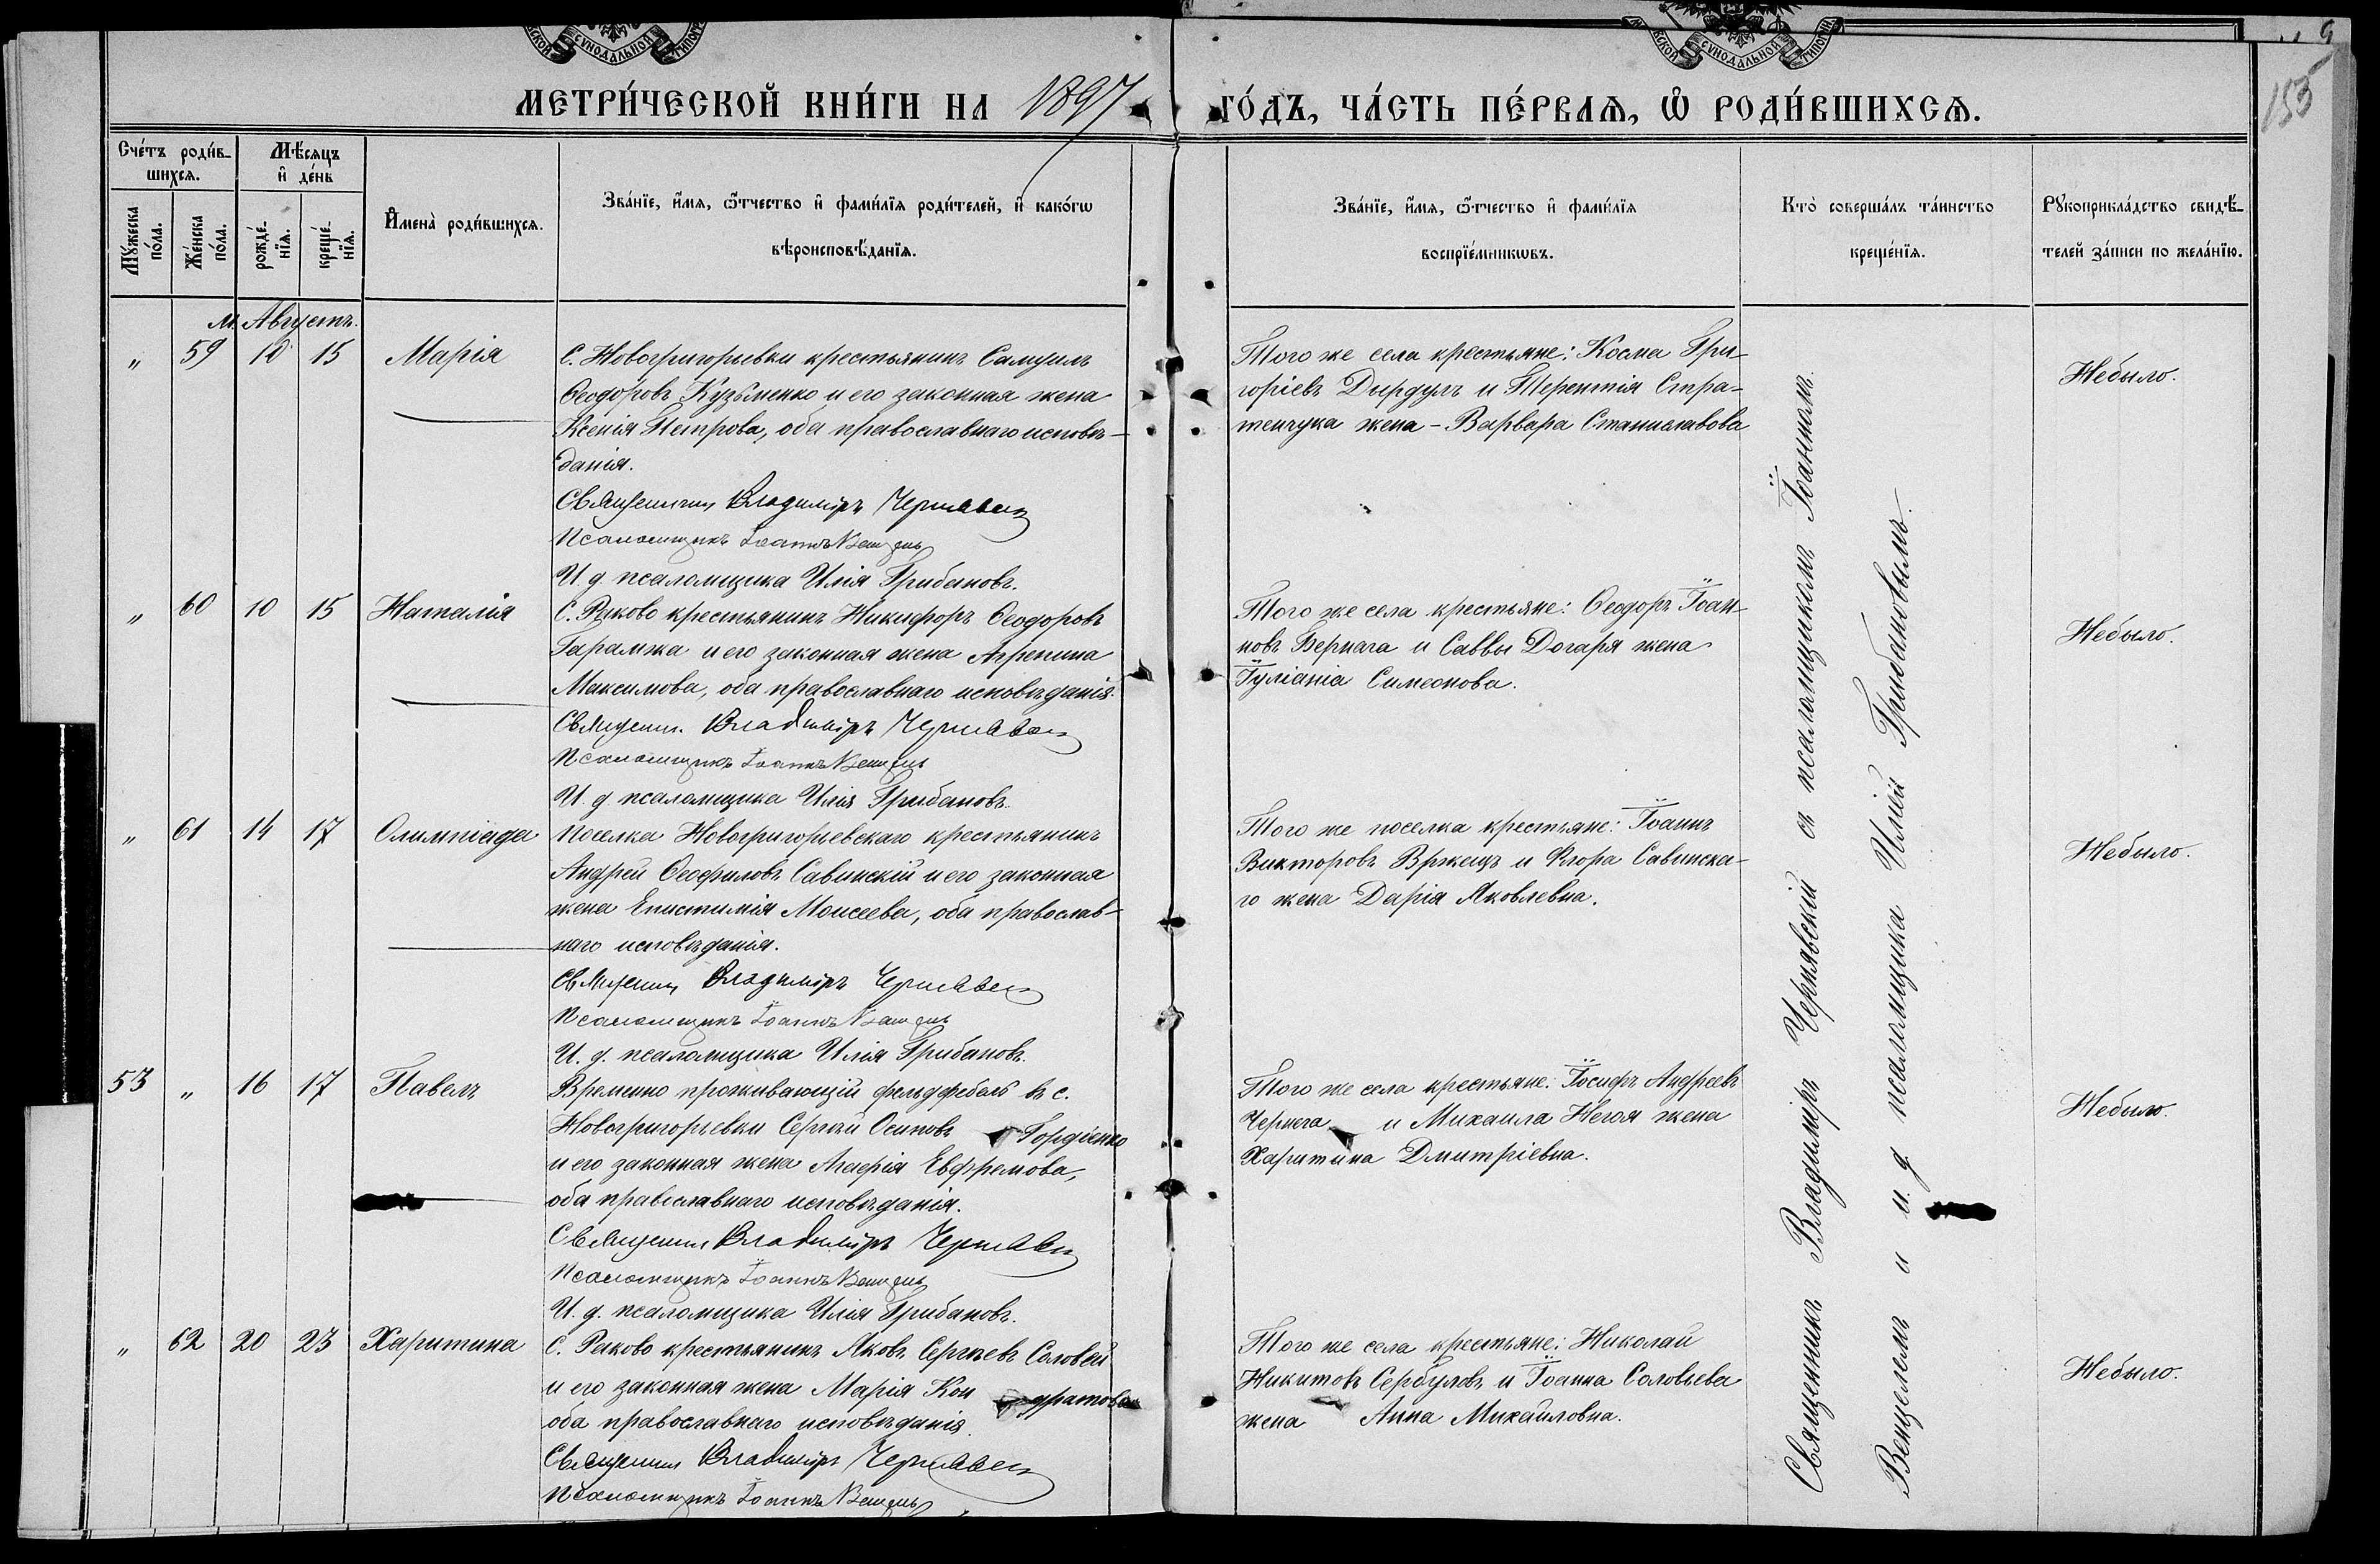 МЕТРИ́ЧЕСКОЙ КНИ́ГИ НА 1897 ГО́ДЪ, ЧА́СТЬ ПЕ́РВАѦ, Ѡ҆ РОДИ́ВШИХСѦ.
155
Сче́тъ роди́в-
шихсѧ.
Мѣ́сѧцъ
и҆ де́нь
Мꙋ́жеска
по́ла.
Же́нска
по́ла.
рожде́-
нїѧ.
креще́-
нїѧ.
И҆мена̀ роди́вшихсѧ.
Зва́нїе, и҆́мѧ, ѻ҆́тчество и҆ фами́лїѧ роди́телей, и҆ како́гѡ
вѣроисповѣ́данїѧ.
Зва́нїе, и҆́мѧ, ѻ҆́тчество и҆ фами́лїѧ
воспрїе́мникѡвъ.
Кто̀ соверша́лъ та́инство
креще́нїѧ.
Рꙋкоприкла́дство свидѣ́-
телей за́писи по жела́нїю.
М. Августъ.
„ 59 10 15 Марія
С. Новогригорьевки крестьянинъ Самуилъ
Ѳеодоровъ Кузьменко и его законная жена
Ксенія Петрова, оба православнаго исповѣ-
данія.
Священникъ Владиміръ Чернявскій
Псаломщикъ Іоаннъ Венцель
И. д. псаломщика Илія Грибановъ.
Того же села крестьяне: Косма Гри-
горіевъ Дирдулъ и Терентія Стра-
тенчука жена - Варвара Станиславова
Небыло.
„ 60 10 15 Наталія
С. Ряково крестьянинъ Никифоръ Ѳеодоровъ
Гарамжа и его законная жена Агрепина
Максимова, оба православнаго исповѣданія.
Священник. Владиміръ Чернявскій
Псаломщикъ Іоаннъ Венцель
И. д. псаломщика Илія Грибановъ.
Того же села крестьяне: Ѳеодоръ Іоан-
новъ Бернага и Саввы Догаря жена
Іуліанія Симеонова.
Небыло.
„ 61 14 17 Олимпіада
Поселка Новогригорьевскаго крестьянинъ
Андрей Ѳеофиловъ Савинскій и его законная
жена Епистимія Моисеева, оба православ-
наго исповѣданія.
Священник Владиміръ Чернявскій
Псаломщикъ Іоаннъ Венцель
И. д. псаломщика Илія Грибановъ.
Того же поселка крестьяне: Іоаннъ
Викторовъ Вржещъ и Флора Савинска-
го жена Дарія Яковлевна.
Небыло.
53 „ 16 17 Павелъ
Временно проживающій фельдфебель въ с.
Новогригорьевки Сергѣй Осиповъ Гордіенко
и его законная жена Агаѳія Евфремова,
оба православнаго исповѣданія.
Священник Владиміръ Чернявскій
Псаломщикъ Іоаннъ Венцель
И. д. псаломщика Илія Грибановъ.
Того же села крестьяне: Іосифъ Андреевъ
Чернега и Михаила Негоя жена
Харитина Дмитріевна.
Небыло.
„ 62 20 23 Харитина
С. Ряково крестьянинъ Яковъ Сергѣевъ Соловей
и его законная жена Марія Кон дратова
оба православнаго исповѣданія.
Священник Владиміръ Чернявскій
Псаломщикъ Іоаннъ Венцель
Того же села крестьяне: Николай
Никитовъ Сербуловъ и Іоанна Соловьева
жена Анна Михайловна.
Небыло.
Священникъ Владиміръ Чернявскій съ псаломщикомъ Іоанномъ
Венцелемъ и и. д. псаломщика Иліей Грибановымъ.